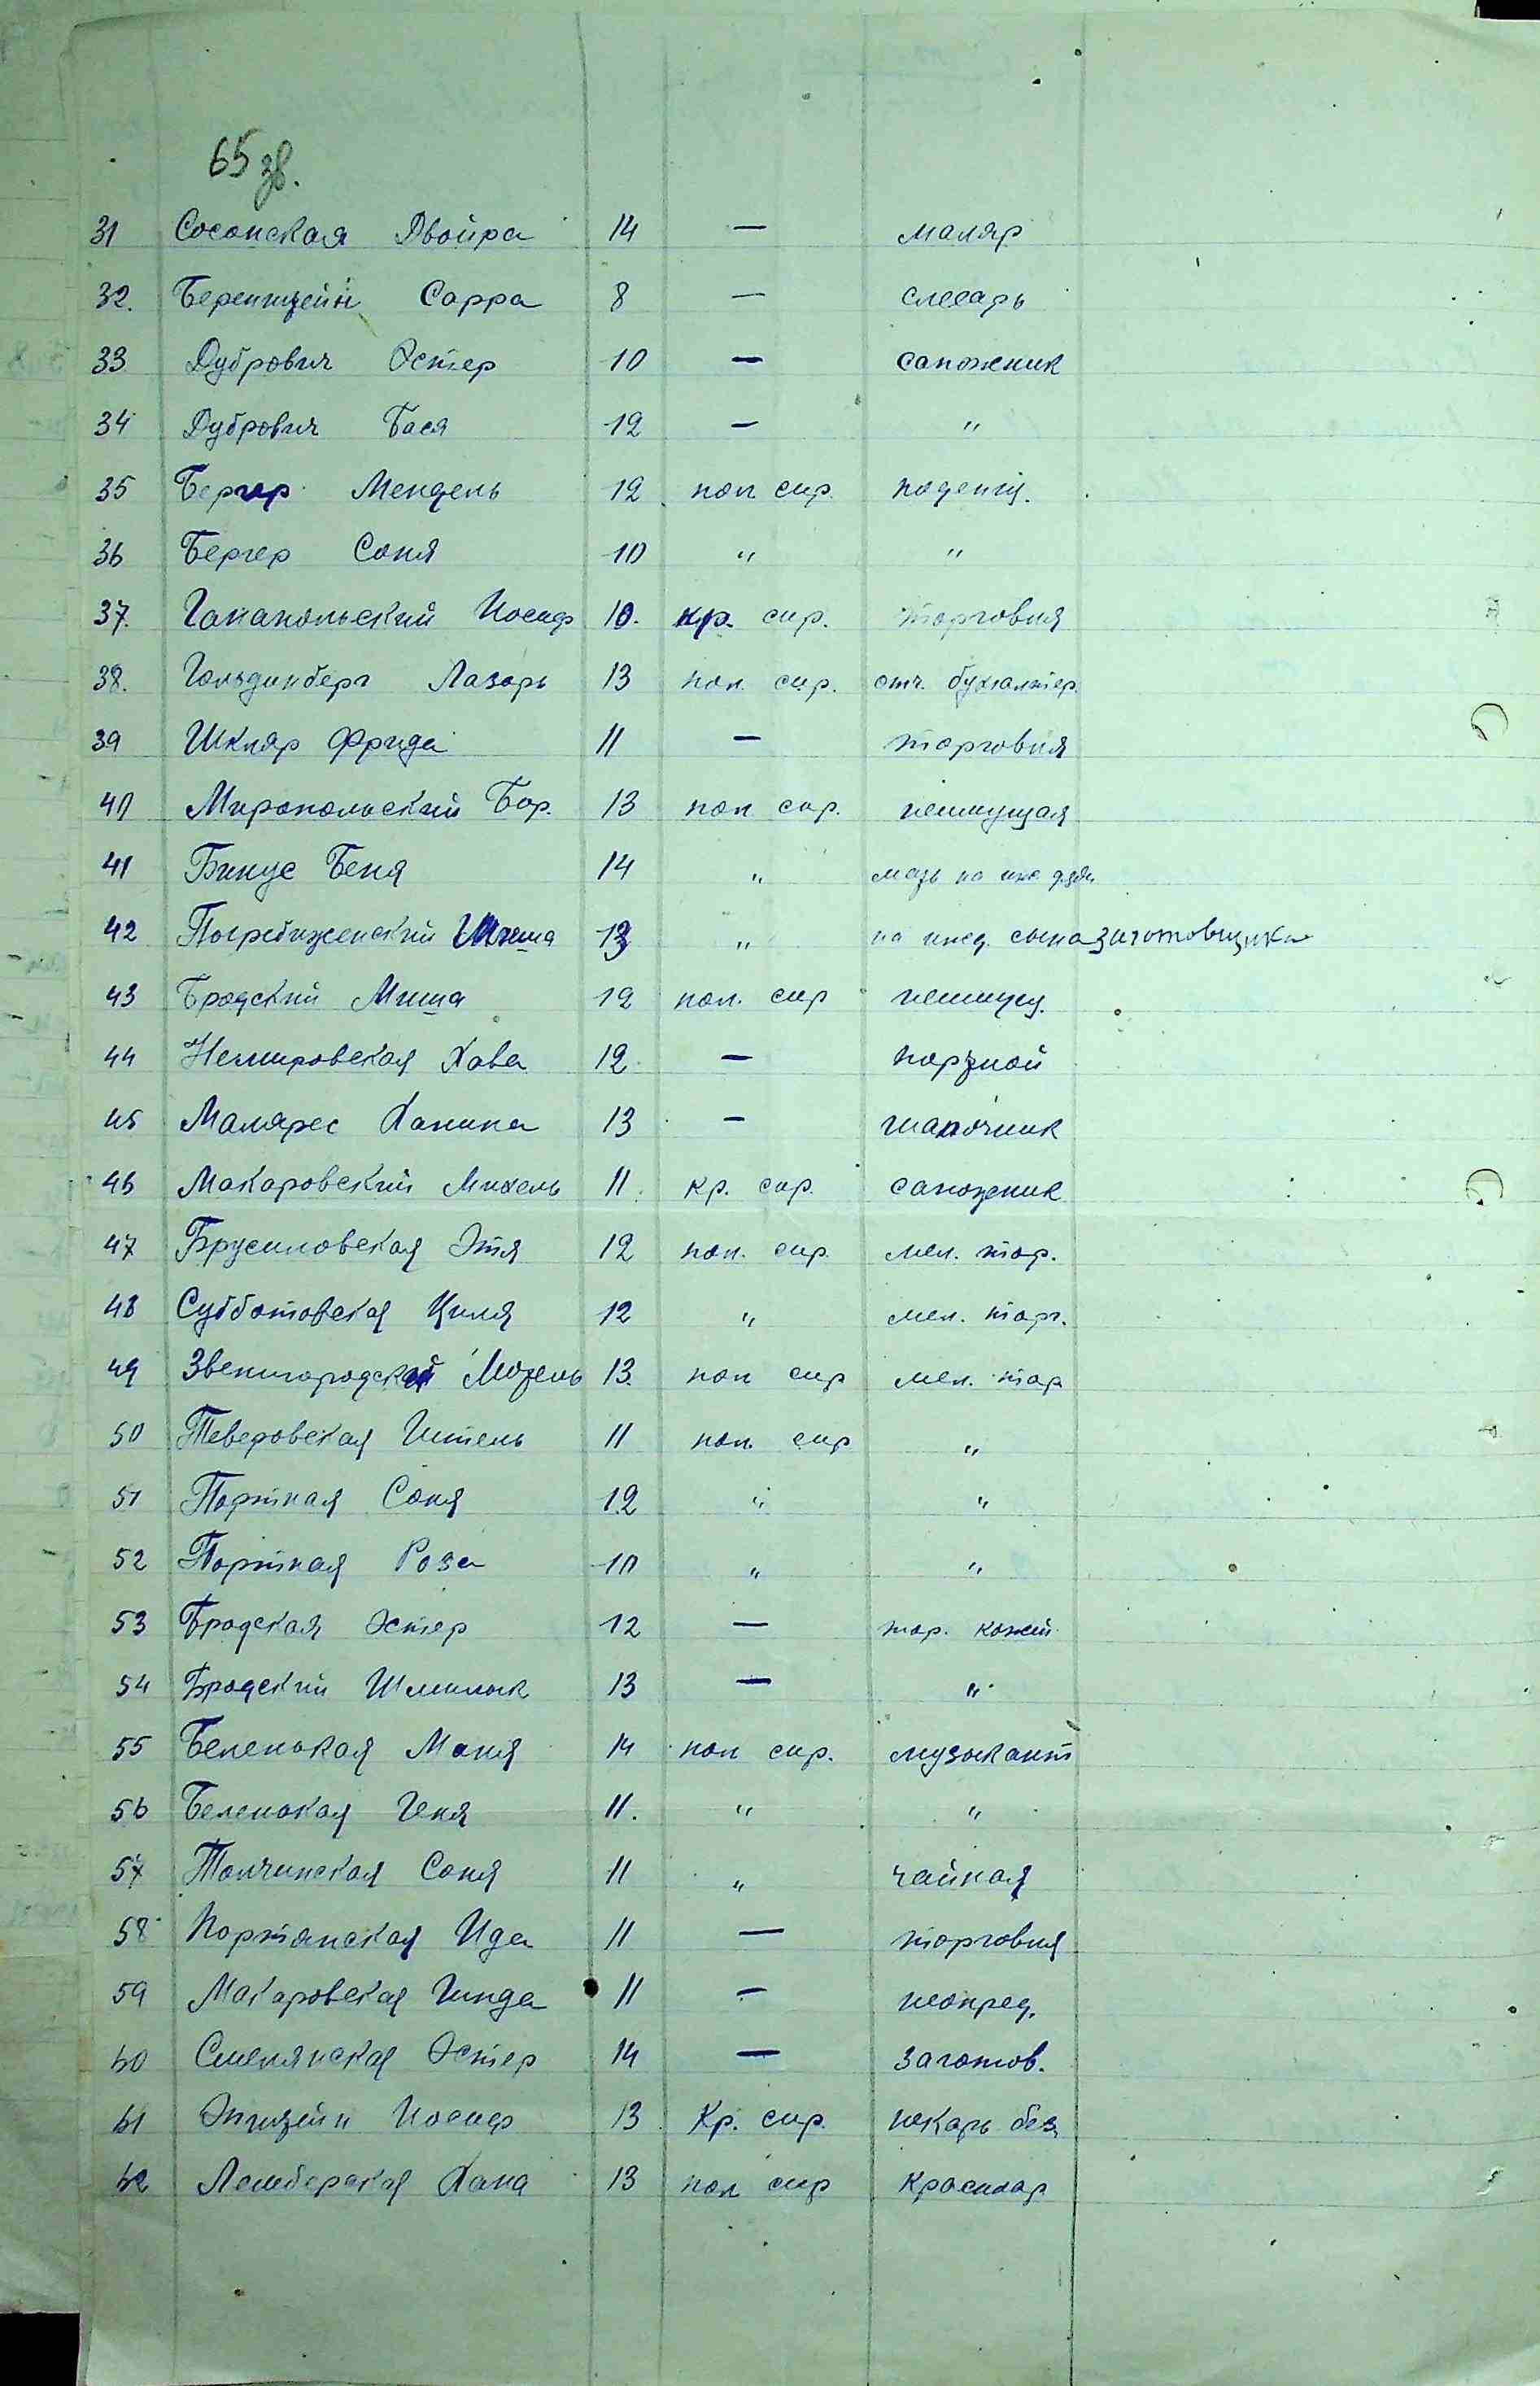 65 зв.
31 Сосонская Двойра 14 — маляр
32. Беренштейн Сарра 8 — слесарь
33 Дубрович Эстер 10 — сапожник
34 Дубрович Бася 12 — "
35 Бергер Мендель 12 пол сир. поденщ.
36 Бергер Соня 10 " "
37. Ганапольский Иосиф 10. кр. сир. торговля
38. Гольдинберг Лазарь 13 пол. сир. отч. бухгалтер.
39 Шкляр Фрида 11 — торговля
40 Миропольский Бор. 13 пол сир. неимущая
41 Бинус Беня 14 " мать на иж. дяди
42 Погребиженский Миша 13 " на ижд. сына заготовщика
43 Бродский Миша 12 пол. сир неимущ.
44 Немировская Хава 12 — портной
45 Малярес Ханина 13 — шапочник
46 Макаровский Михель 11. кр. сир. сапожник
47 Брусиловская Этя 12 пол. сир. мел. тор.
48 Субботовская Циля 12 " мел. торг.
49 Звенигородский Мозель 13. пол сир мел. тор
50 Теверовская Гитель 11 пол. сир "
51 Портная Соня 12 " "
52 Портная Роза 10 " "
53 Бродская Эстер 12 — тор. кожей
54 Бродский Шмилык 13 — "
55 Беленокая Маня 14 пол сир. музыкант
56 Беленокая Геня 11. " "
57 Толчинская Соня 11 " чайная
58 Портянская Ида 11 — торговля
59 Макаровская Гинда 11 — неопред.
60 Смелянская Эстер 14 — заготов.
61 Эпштейн Иосиф 13 Кр. сир. пекарь без.
62 Лемберская Хана 13 пол сир красильщ